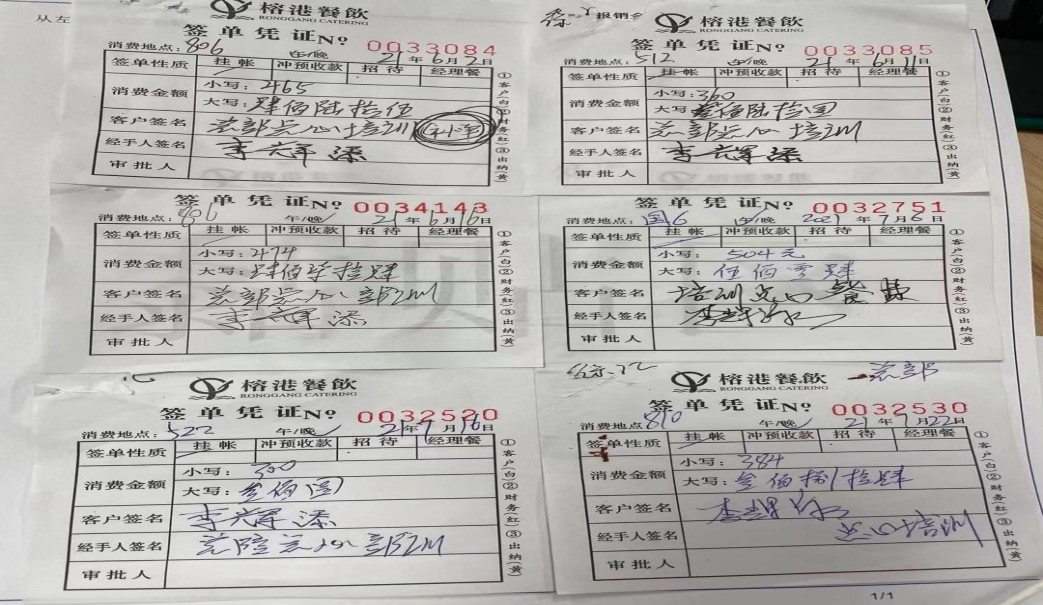 从左
榕港餐飲
RONGGANG CATERING
签单凭证№ 0033084
消费地点：806 午/晚 21年6月2日
签单性质 挂帐 冲预收款 招待 经理餐
消费金额 小写：465
大写：肆佰陆拾伍
客户签名 培训
经手人签名 李
审批人
①客户(白)②财务(红)③出纳(黄)
报销
榕港餐飲
RONGGANG CATERING
签单凭证№ 0033085
消费地点：512 午/晚 21年6月11日
签单性质 挂帐 冲预收款 招待 经理餐
消费金额 小写：360
大写：叁佰陆拾圆
客户签名 培训
经手人签名 李
审批人
①客户(白)②财务(红)③出纳(黄)
签单凭证№ 0034143
消费地点：806 午/晚 21年6月16日
签单性质 挂帐 冲预收款 招待 经理餐
消费金额 小写：474
大写：肆佰柒拾肆
客户签名
经手人签名 李
审批人
①客户(白)②财务(红)③出纳(黄)
签单凭证№ 0032751
消费地点：国6 午/晚 2021年7月6日
签单性质 挂帐 冲预收款 招待 经理餐
消费金额 小写：504元
大写：伍佰零肆
客户签名 培训
经手人签名 李
审批人
①客户(白)②财务(红)③出纳(黄)
榕港餐飲
RONGGANG CATERING
签单凭证№ 0032520
消费地点：522 午/晚 21年7月16日
签单性质 挂帐 冲预收款 招待 经理餐
消费金额 小写：300
大写：叁佰圆
客户签名 李
经手人签名
审批人
①客户(白)②财务(红)③出纳(黄)
榕港餐飲
RONGGANG CATERING
总部
签单凭证№ 0032530
消费地点：810 午/晚 21年7月22日
签单性质 挂帐 冲预收款 招待 经理餐
消费金额 小写：384
大写：叁佰捌拾肆
客户签名 李
经手人签名 培训
审批人
①客户(白)②财务(红)③出纳(黄)
1/1